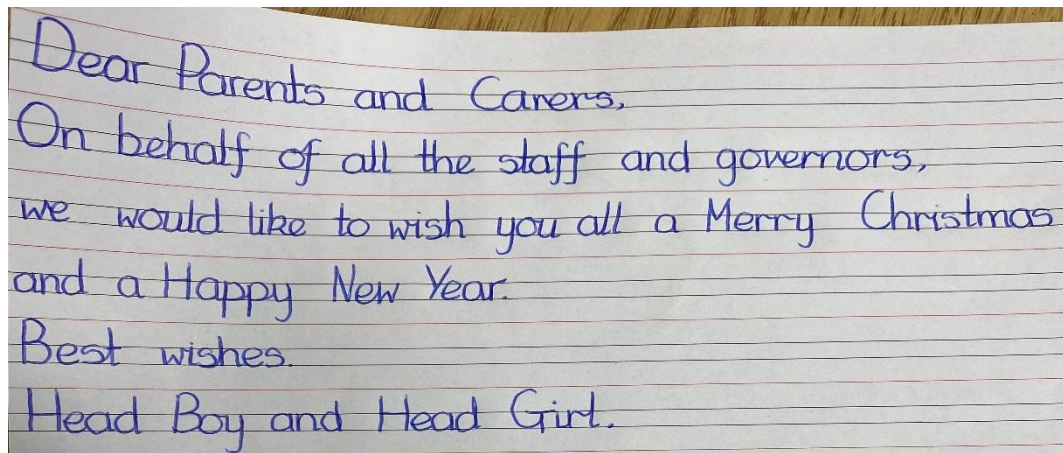 Dear Parents and Carers,
On behalf of all the staff and governors,
we would like to wish you all a Merry Christmas
and a Happy New Year.
Best wishes.
Head Boy and Head Girl.